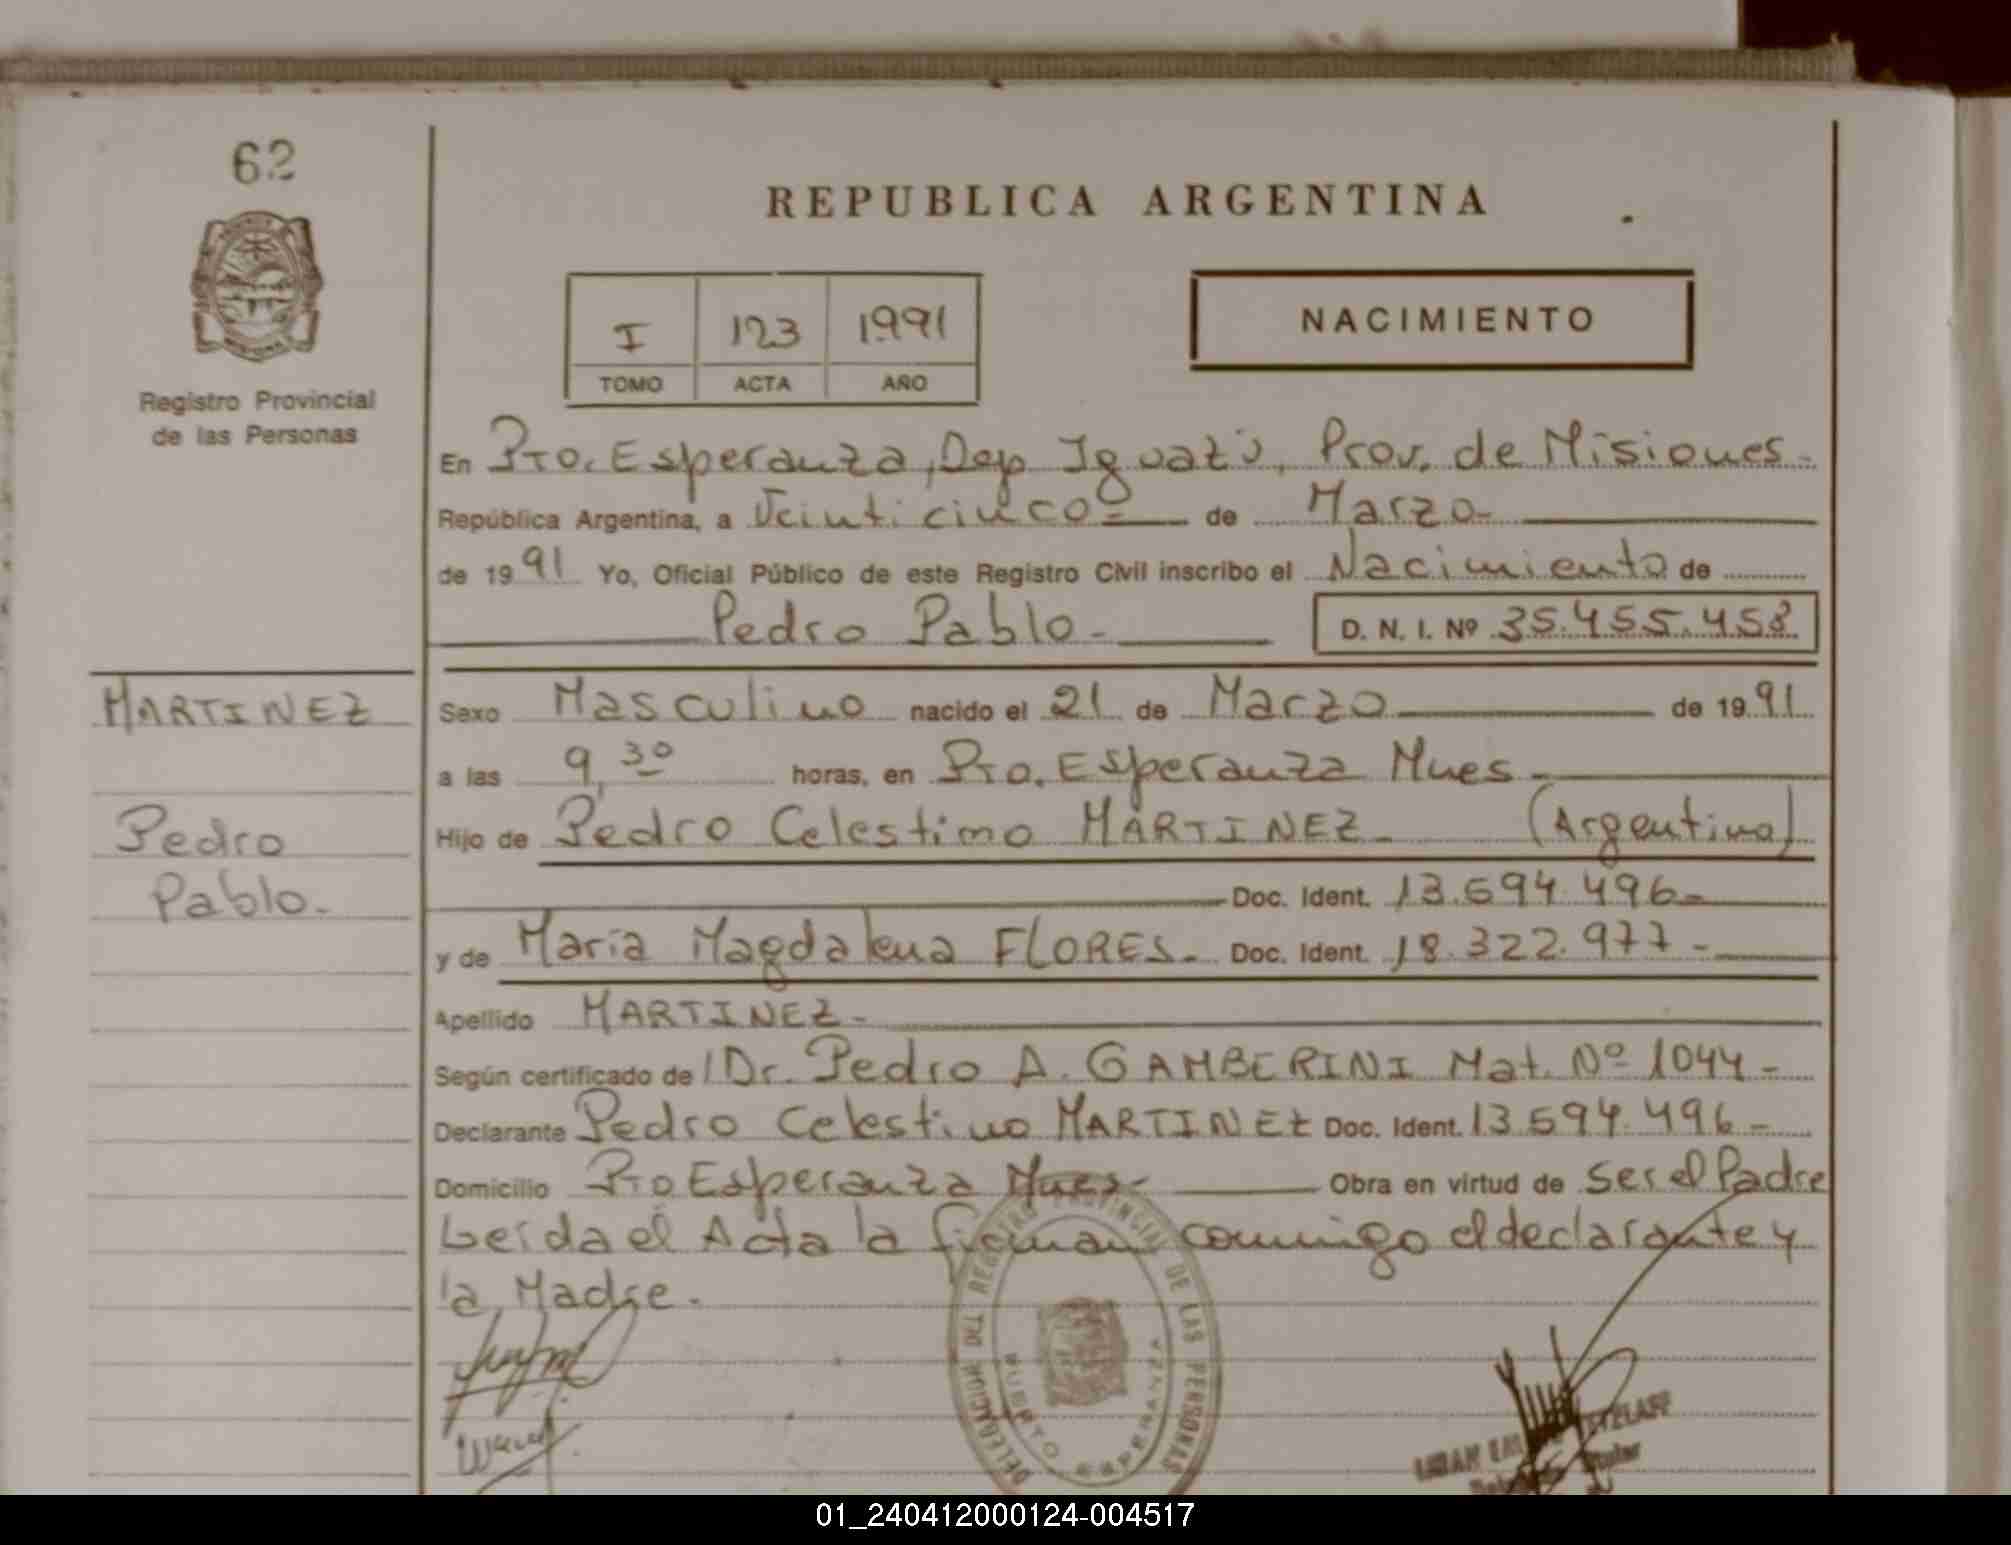 62
REPUBLICA ARGENTINA
I 123 1991
TOMO ACTA AÑO
NACIMIENTO
Registro Provincial
de las Personas
En Pto. Esperanza, Dep Iguazú, Prov. de Misiones.
República Argentina, a Veinticinco de Marzo
de 1991 Yo, Oficial Público de este Registro Civil inscribo el Nacimiento de
Pedro Pablo D. N. I. Nº 35.455.458
MARTINEZ
Pedro
Pablo.
Sexo Masculino nacido el 21 de Marzo de 1991
a las 9,30 horas, en Pto. Esperanza Mnes
Hijo de Pedro Celestino MARTINEZ (Argentino)
Doc. Ident. 13.594.496
y de Maria Magdalena FLORES. Doc. Ident. 18.322.977
Apellido MARTINEZ
Según certificado de Dr. Pedro A. GAMBERINI Mat. Nº 1044
Declarante Pedro Celestino MARTINEZ Doc. Ident. 13.594.496
Domicilio Pto Esperanza Mnes Obra en virtud de ser el Padre
Leida el Acta la firman conmigo el declarante y
la Madre.
DELEGACION DEL REGISTRO PROVINCIAL DE LAS PERSONAS
PUERTO ESPERANZA
01_240412000124-004517